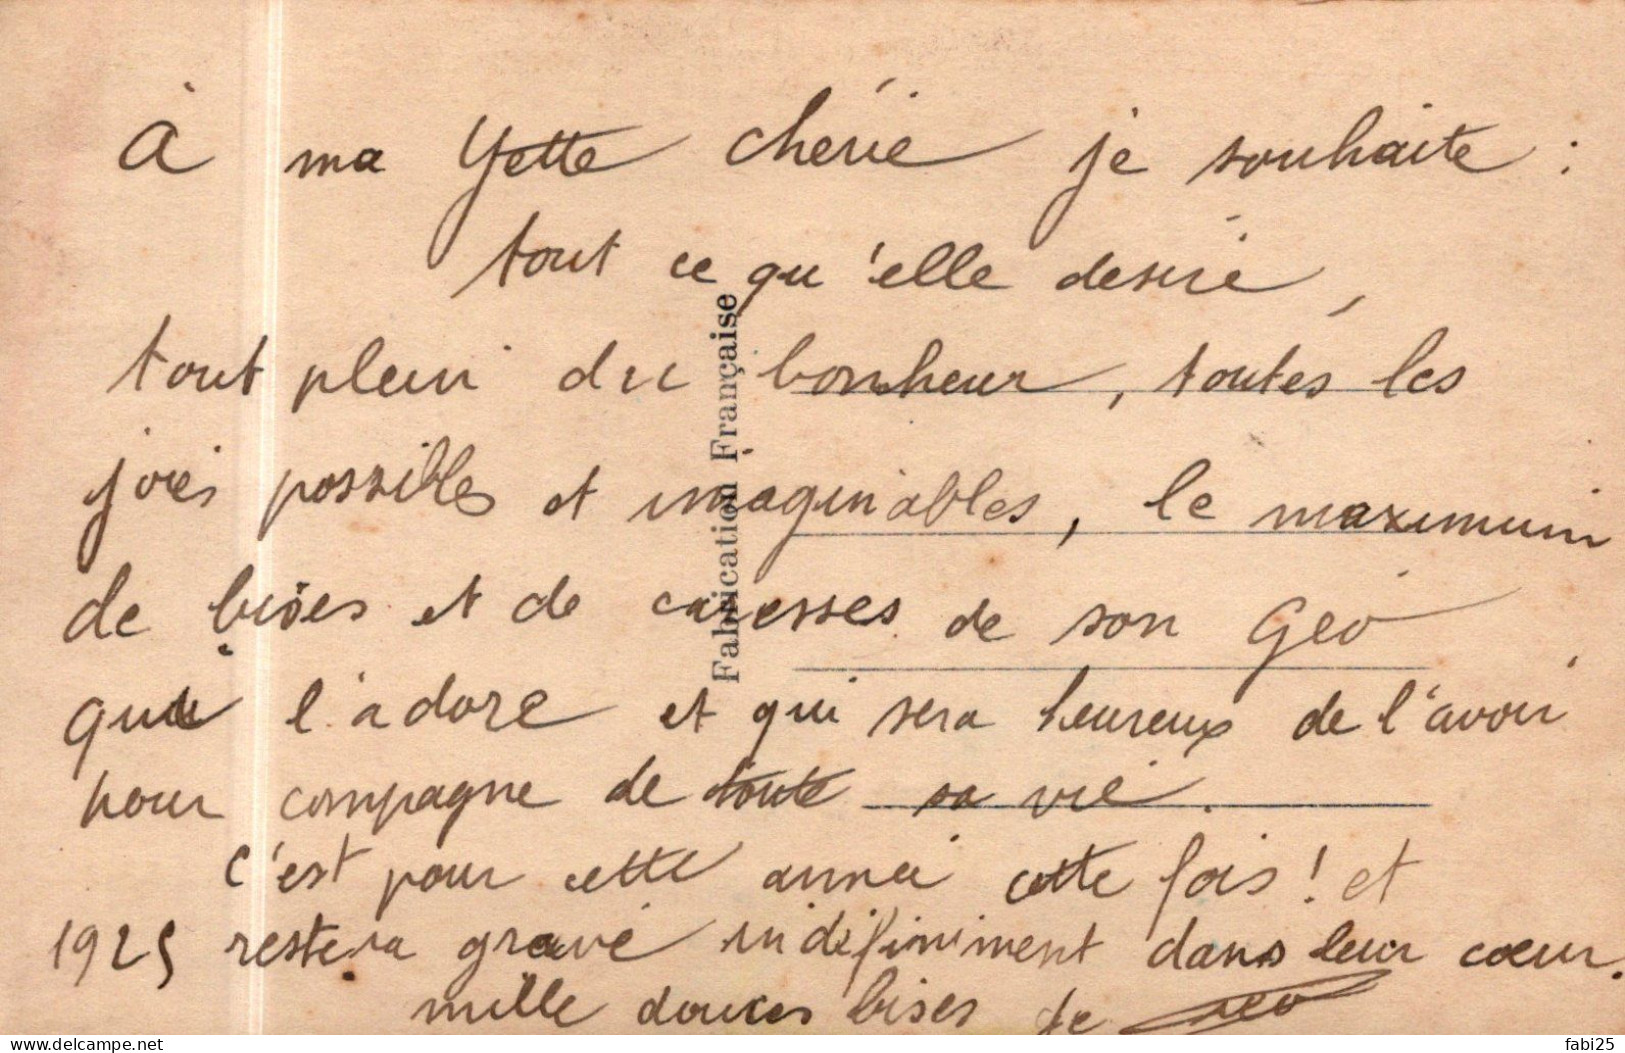 À ma Yette chérie je souhaite :
tout ce qu'elle desire,
tout plein du bonheur, toutes les
joies possibles et imaginables, le maximum
de bises et de caresses de son Géo
qui l'adore et qui sera heureux de l'avoir
pour compagne de toute sa vie.
C'est pour cette année cette fois ! et
1925 restera gravé indéfiniment dans leur cœur.
mille douces bises de Géo
Fabrication Française
delcampe.net
fabi25